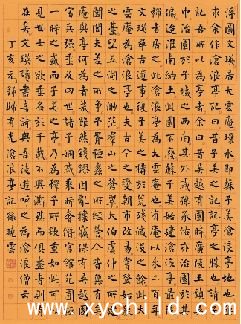 浮圖文瑛居大雲庵環水即蘇子美滄浪亭之地也亟
求余作滄浪亭記曰昔子美之記記亭之勝也請子
記吾所以為亭者余曰昔吳越有國時廣陵王鎮吳
中治園於子城之西南其外戚孫承佑亦治園於其
偏迨淮海納土此園不廢蘇子美始建滄浪亭最後
禪者居之此滄浪亭為大雲庵也有庵以來二百年
文瑛尋古遺事復子美之構於荒殘滅沒之餘此大
雲庵為滄浪亭也夫古今之變朝市改易嘗登姑蘇
之臺望五湖之渺茫群山之蒼翠太伯虞仲之所建
闔閭夫差之所爭子胥種蠡之所經營今皆無有矣
庵與亭何為者哉雖然錢鏐因亂攘竊保有吳越國富
兵強垂及四世諸子姻戚乘時奢僭宮館苑囿極
一時之盛而子美之亭乃為釋子所欽重如此可以
見士之欲垂名於千載不與澌然而俱盡者則有
在矣文瑛讀書喜詩與吾徒遊呼之為滄浪僧云
丁亥元 歸有光滄浪亭記徐曉雲
www.xychild.com